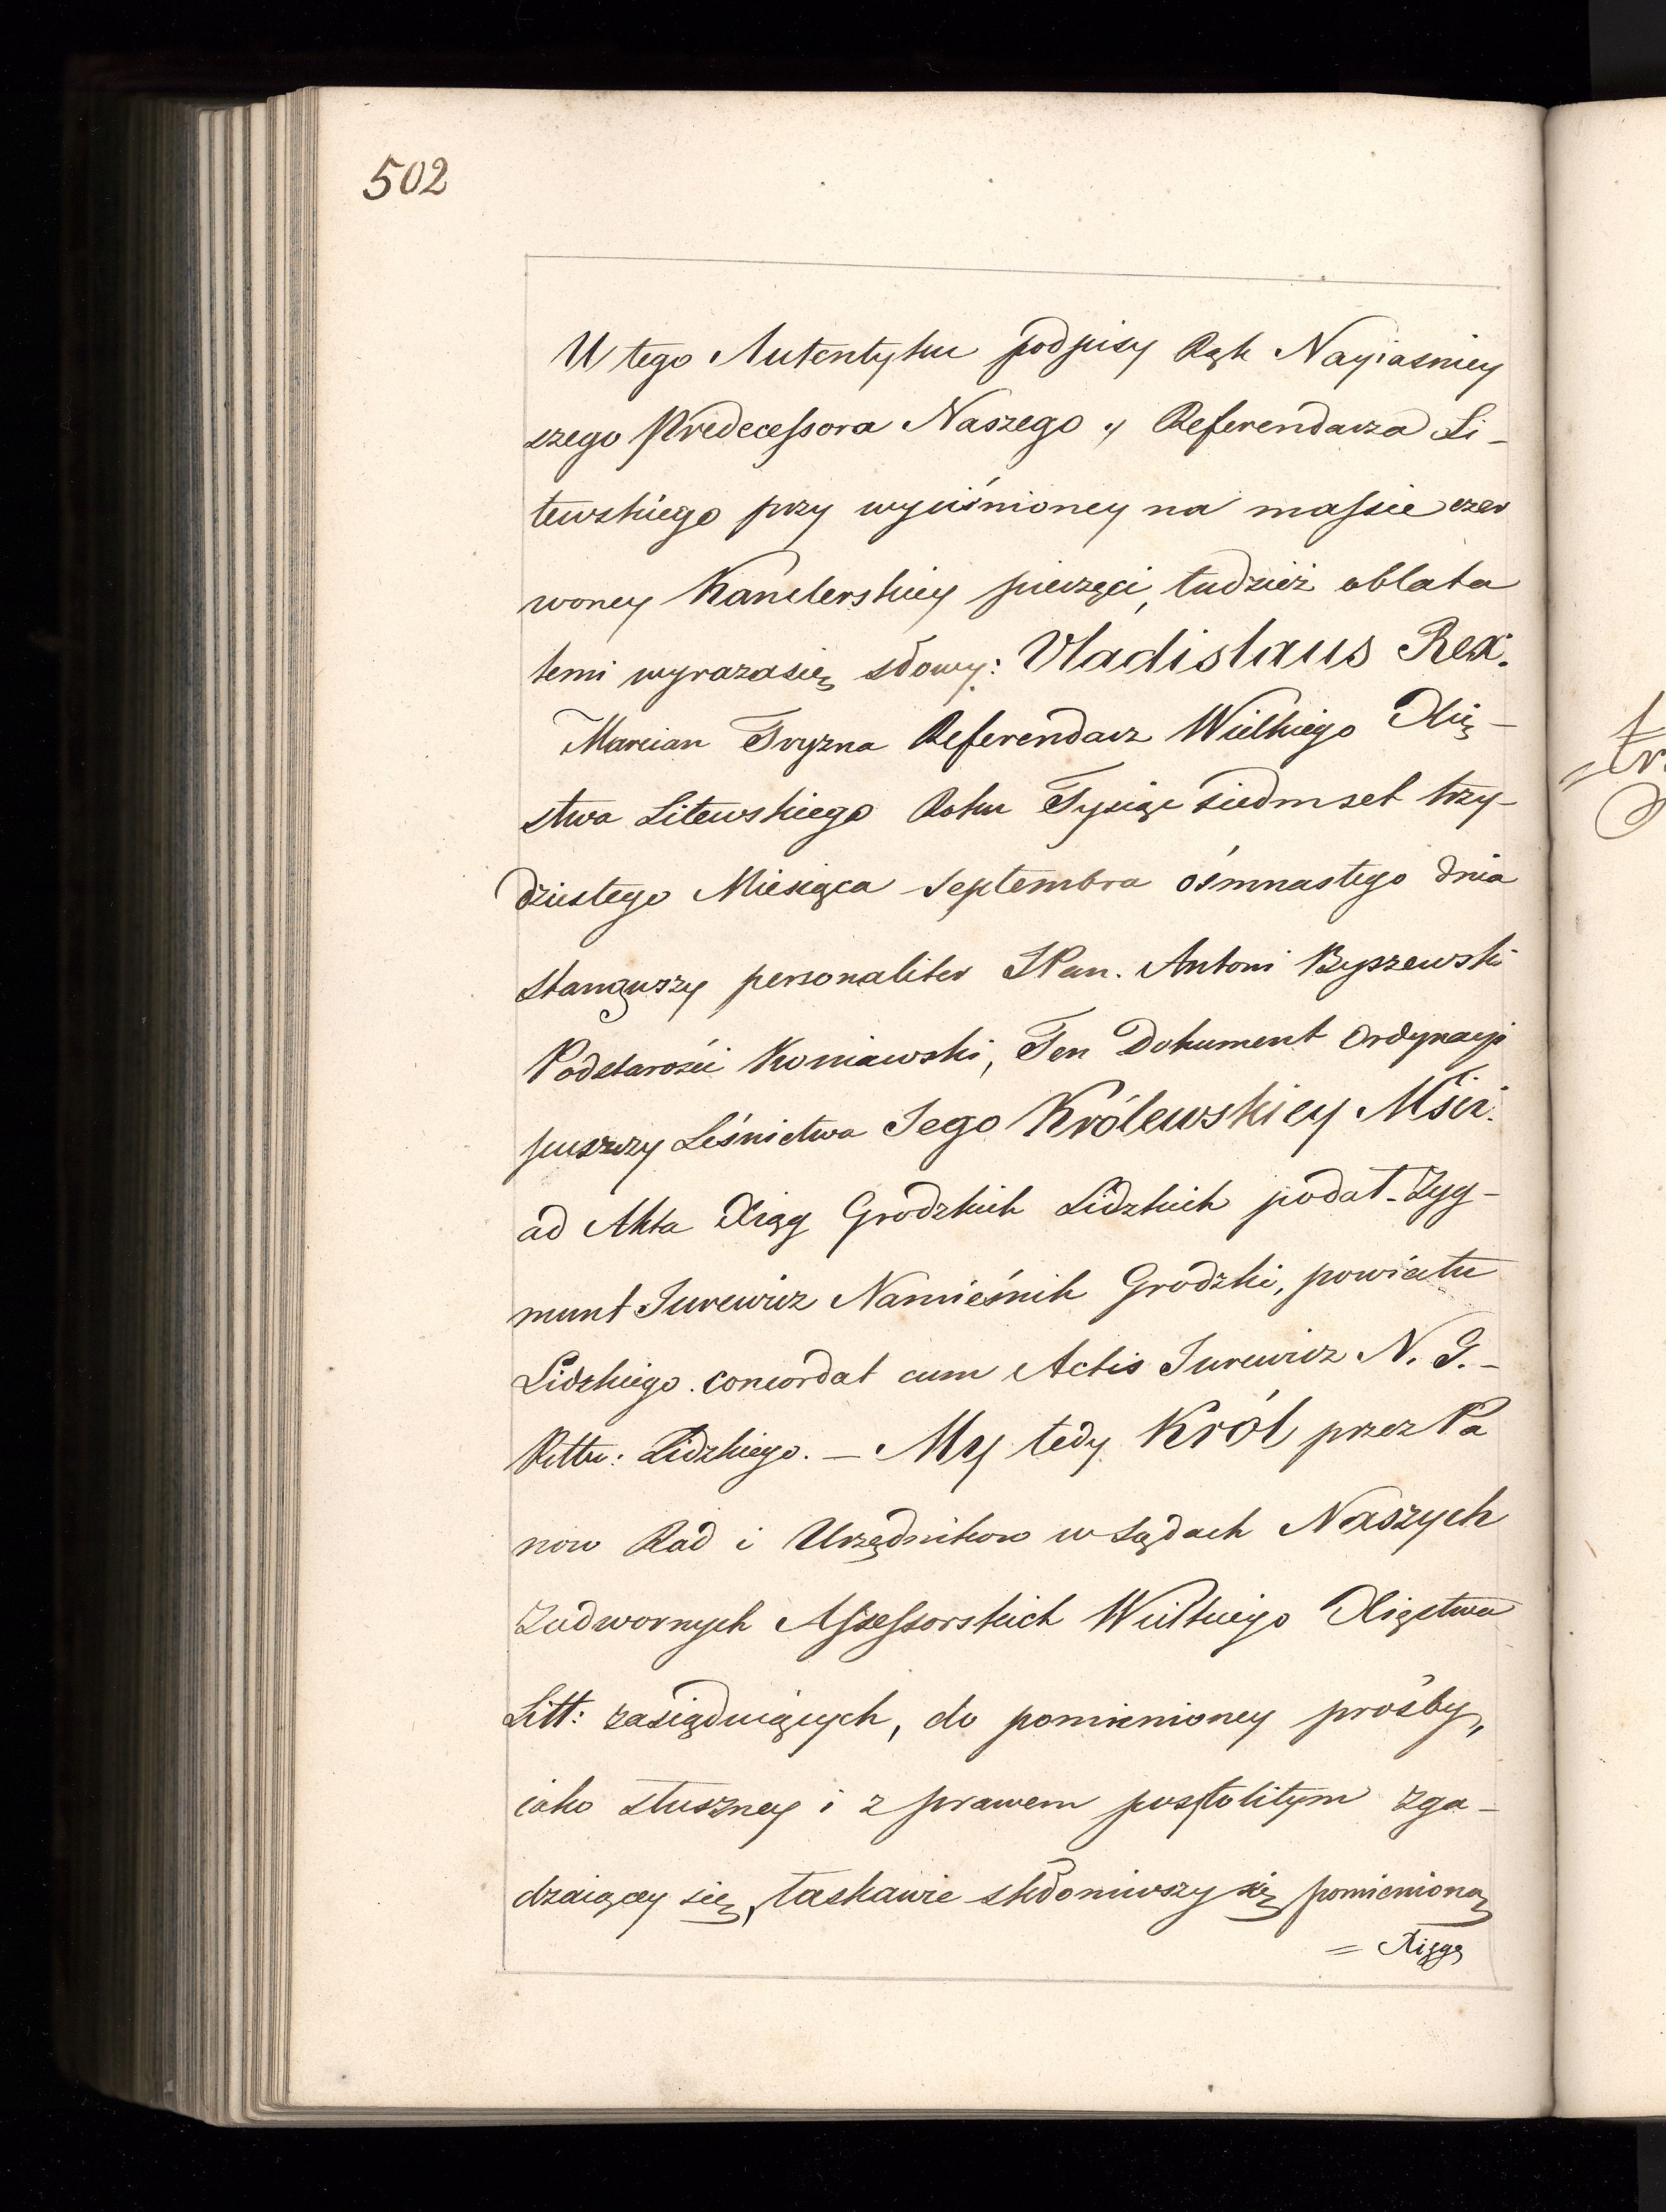 502
U tego Autentyku podpisy Rąk Nayiasniey
szego Predecessora Naszego y Referendarza Li-
tewskiego przy wyciśnioney na massie czer
woney Kanclerskiey pieczęci, tudzież oblata
temi wyrazasię słowy: Vladislaus Rex.
Marcian Tryzna Referendarz Wielkiego Xię-
stwa Litewskiego Roku Tysiąc siedmset trzy-
dziestego Miesiąca Septembra ośmnastego dnia
stanąwszy personaliter JPan. Antoni Byszewski
Podstarości Koniawski, Ten Dokument Ordynacyi
puszczy Leśnictwa Jego Królewskiey Mści.
ad Akta Xiąg Grodzkich Lidzkich podał. Zyg-
munt Jurewicz Namieśnik Grodzki, powiatu
Lidzkiego. concordat cum Actis Jurewicz N. G.-
Pittu: Lidzkiego. - My tedy Król przez Pa
now Rad i Urzędnikow w Sądach Naszych
Zadwornych Assessorskich Wielkiego Xięstwa
Litt: zasiąduiących, do pomienioney prośby,
iako słuszney i z prawem pospolitym zga-
dzaiącey się, łaskawie skłoniwszy się pomienioną
= Xięgę